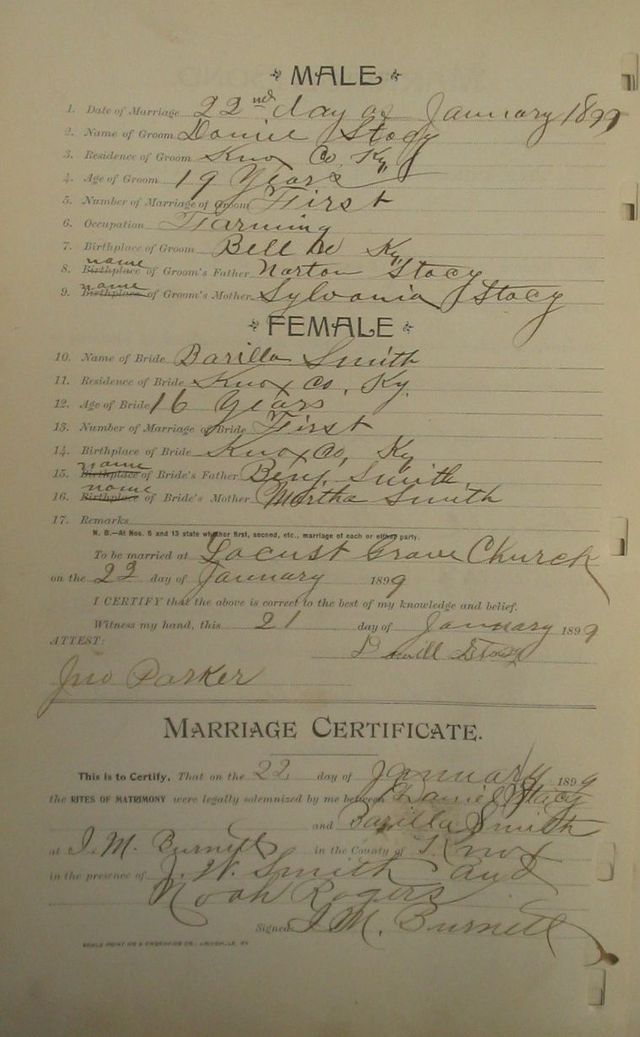 MALE
1. Date of Marriage 22nd day of January 1899
2. Name of Groom Daniel Stacy
3. Residence of Groom Knox Co, Ky
4. Age of Groom 19 Years
5. Number of Marriage of Groom First
6. Occupation Farming
7. Birthplace of Groom Bell Co Ky
name
8. Birthplace of Groom's Father Norton Stacy
name
9. Birthplace of Groom's Mother Sylvania Stacy
FEMALE
10. Name of Bride Barilla Smith
11. Residence of Bride Knox Co, Ky.
12. Age of Bride 16 Years
13. Number of Marriage of Bride First
14. Birthplace of Bride Knox Co, Ky
name
15. Birthplace of Bride's Father Benj. Smith
name
16. Birthplace of Bride's Mother Martha Smith
17. Remarks
N. B.—At Nos. 5 and 13 state whether first, second, etc., marriage of each or either party.
To be married at Locust Grove Church
on the 22 day of January 1899
I CERTIFY that the above is correct to the best of my knowledge and belief.
Witness my hand, this 21 day of January 1899
ATTEST:
Jno Parker
MARRIAGE CERTIFICATE.
This is to Certify, That on the 22 day of January 1899
the RITES OF MATRIMONY were legally solemnized by me between Daniel Stacy
and Barilla Smith
at I. M. Burnett in the County of Knox
in the presence of J. W. Smith and
Noah Rogers
Signed I. M. Burnett